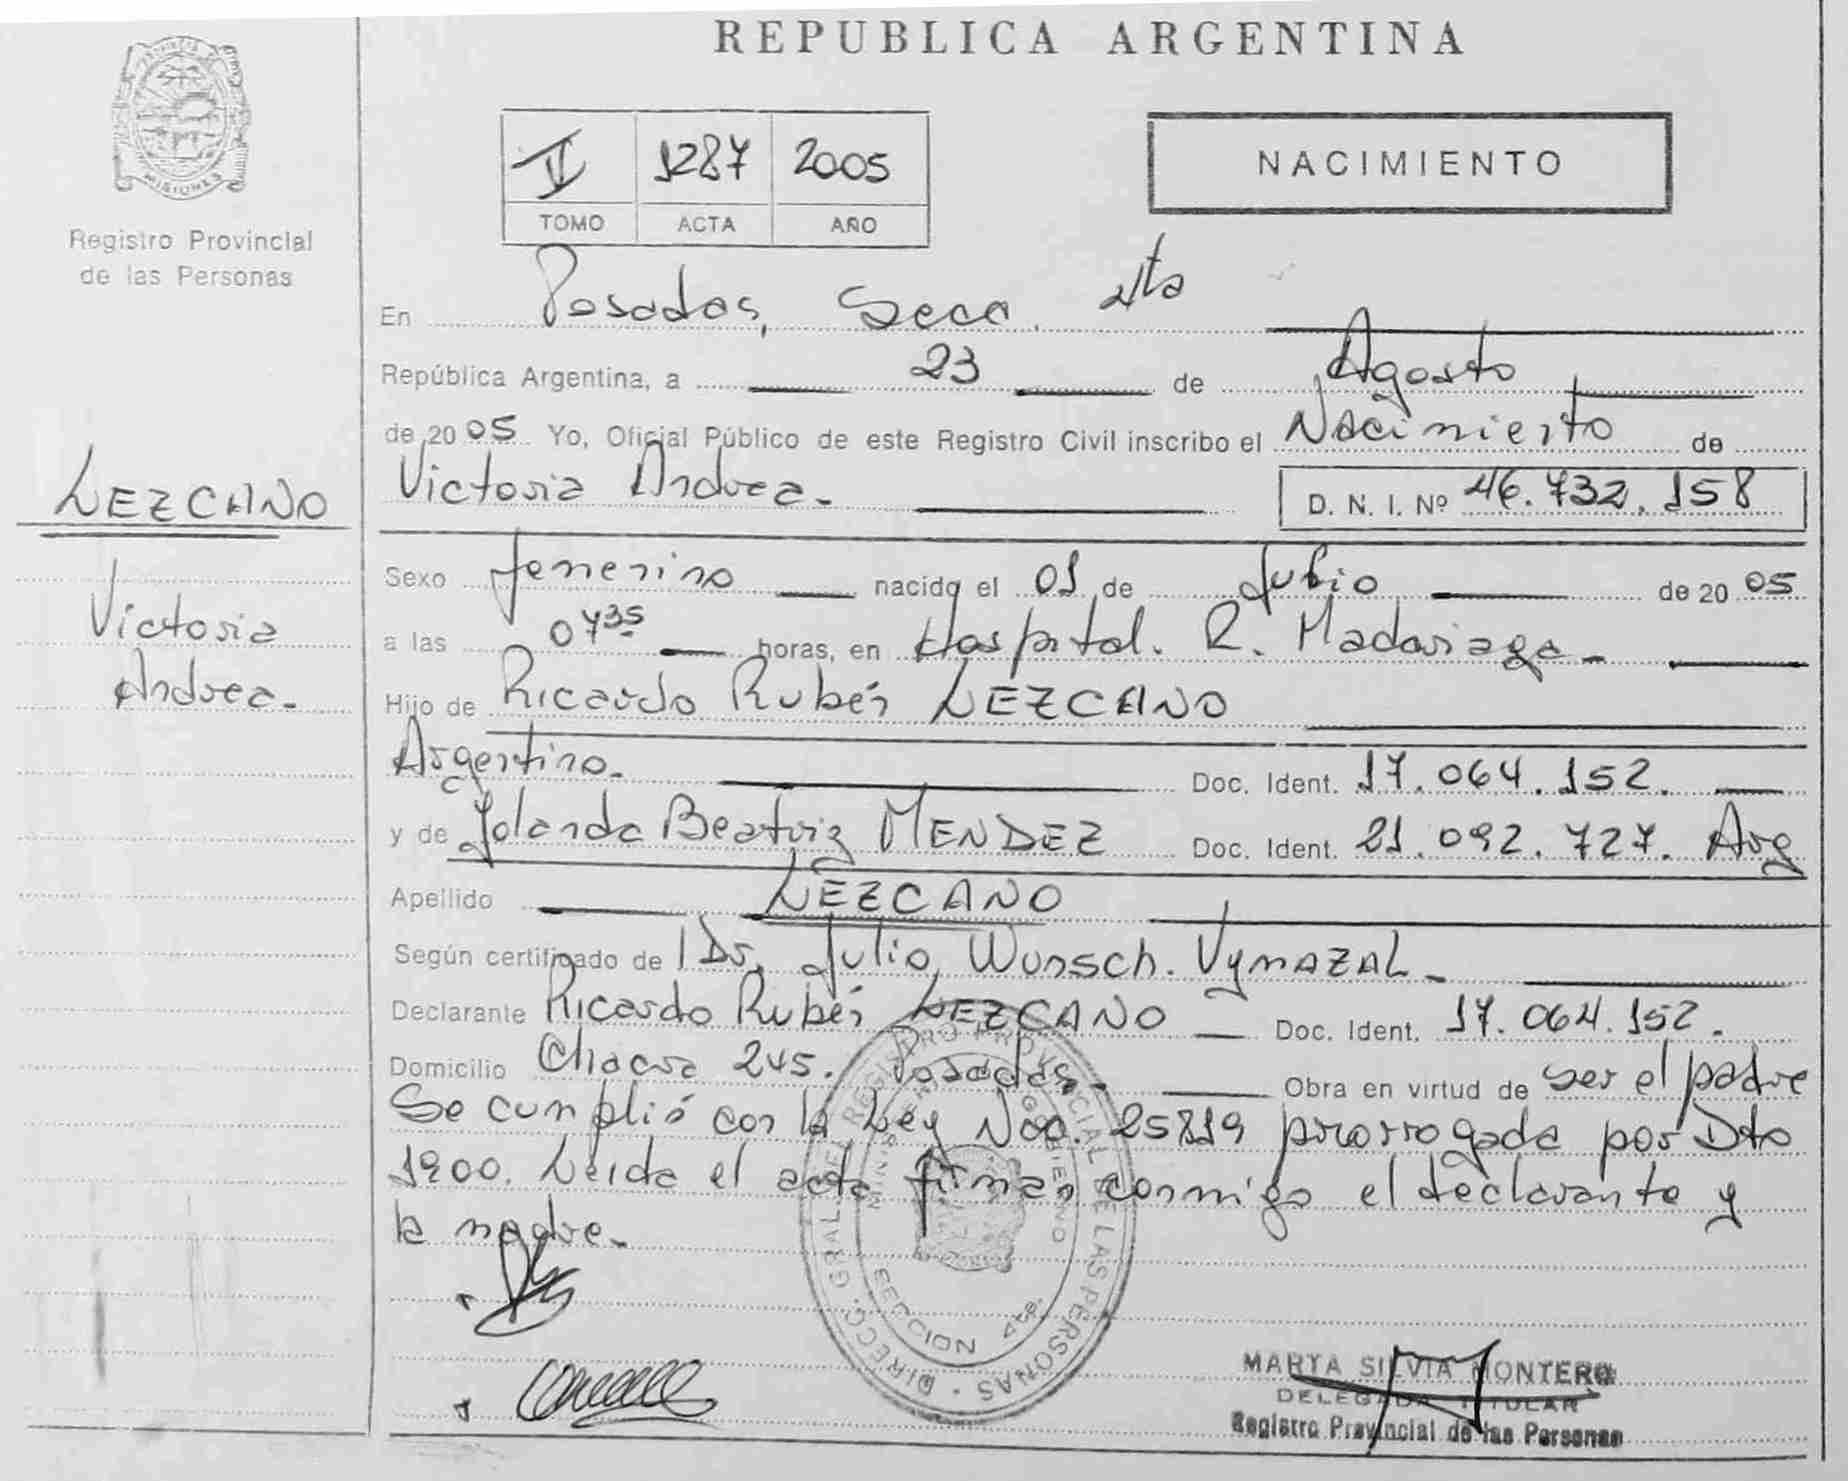 REPUBLICA ARGENTINA
MISIONES
Registro Provincial
de las Personas
II 1287 2005
TOMO ACTA AÑO
NACIMIENTO
En Posadas, Secc. 4ta
República Argentina, a 23 de Agosto
de 2005 Yo, Oficial Público de este Registro Civil inscribo el Nacimiento de
Victoria Andrea.
D. N. I. Nº 46.732.158
LEZCANO
Victoria
Andrea.
Sexo femenino nacido el 01 de Julio de 2005
a las 0735 horas, en Hospital. R. Madariaga
Hijo de Ricardo Rubén LEZCANO
Argentino. Doc. Ident. 17.064.152.
y de Yolanda Beatriz MENDEZ Doc. Ident. 21.092.727. Arg
Apellido LEZCANO
Según certificado de Dr. Julio Wunsch. VymAZAL
Declarante Ricardo Rubén LEZCANO Doc. Ident. 17.064.152.
Domicilio Chacra 245. Posadas. Obra en virtud de ser el padre
Se cumplió con la Ley Nro. 25819 prorrogada por Dto
1900. Leida el acta firman conmigo el declarante y
la madre.
DIRECC. GRAL. DEL REGISTRO PROVINCIAL DE LAS PERSONAS
MINISTERIO GOBIERNO
SECCION 4ta.
MARTA SILVIA MONTERO
DELEGADA TITULAR
Registro Provincial de las Personas